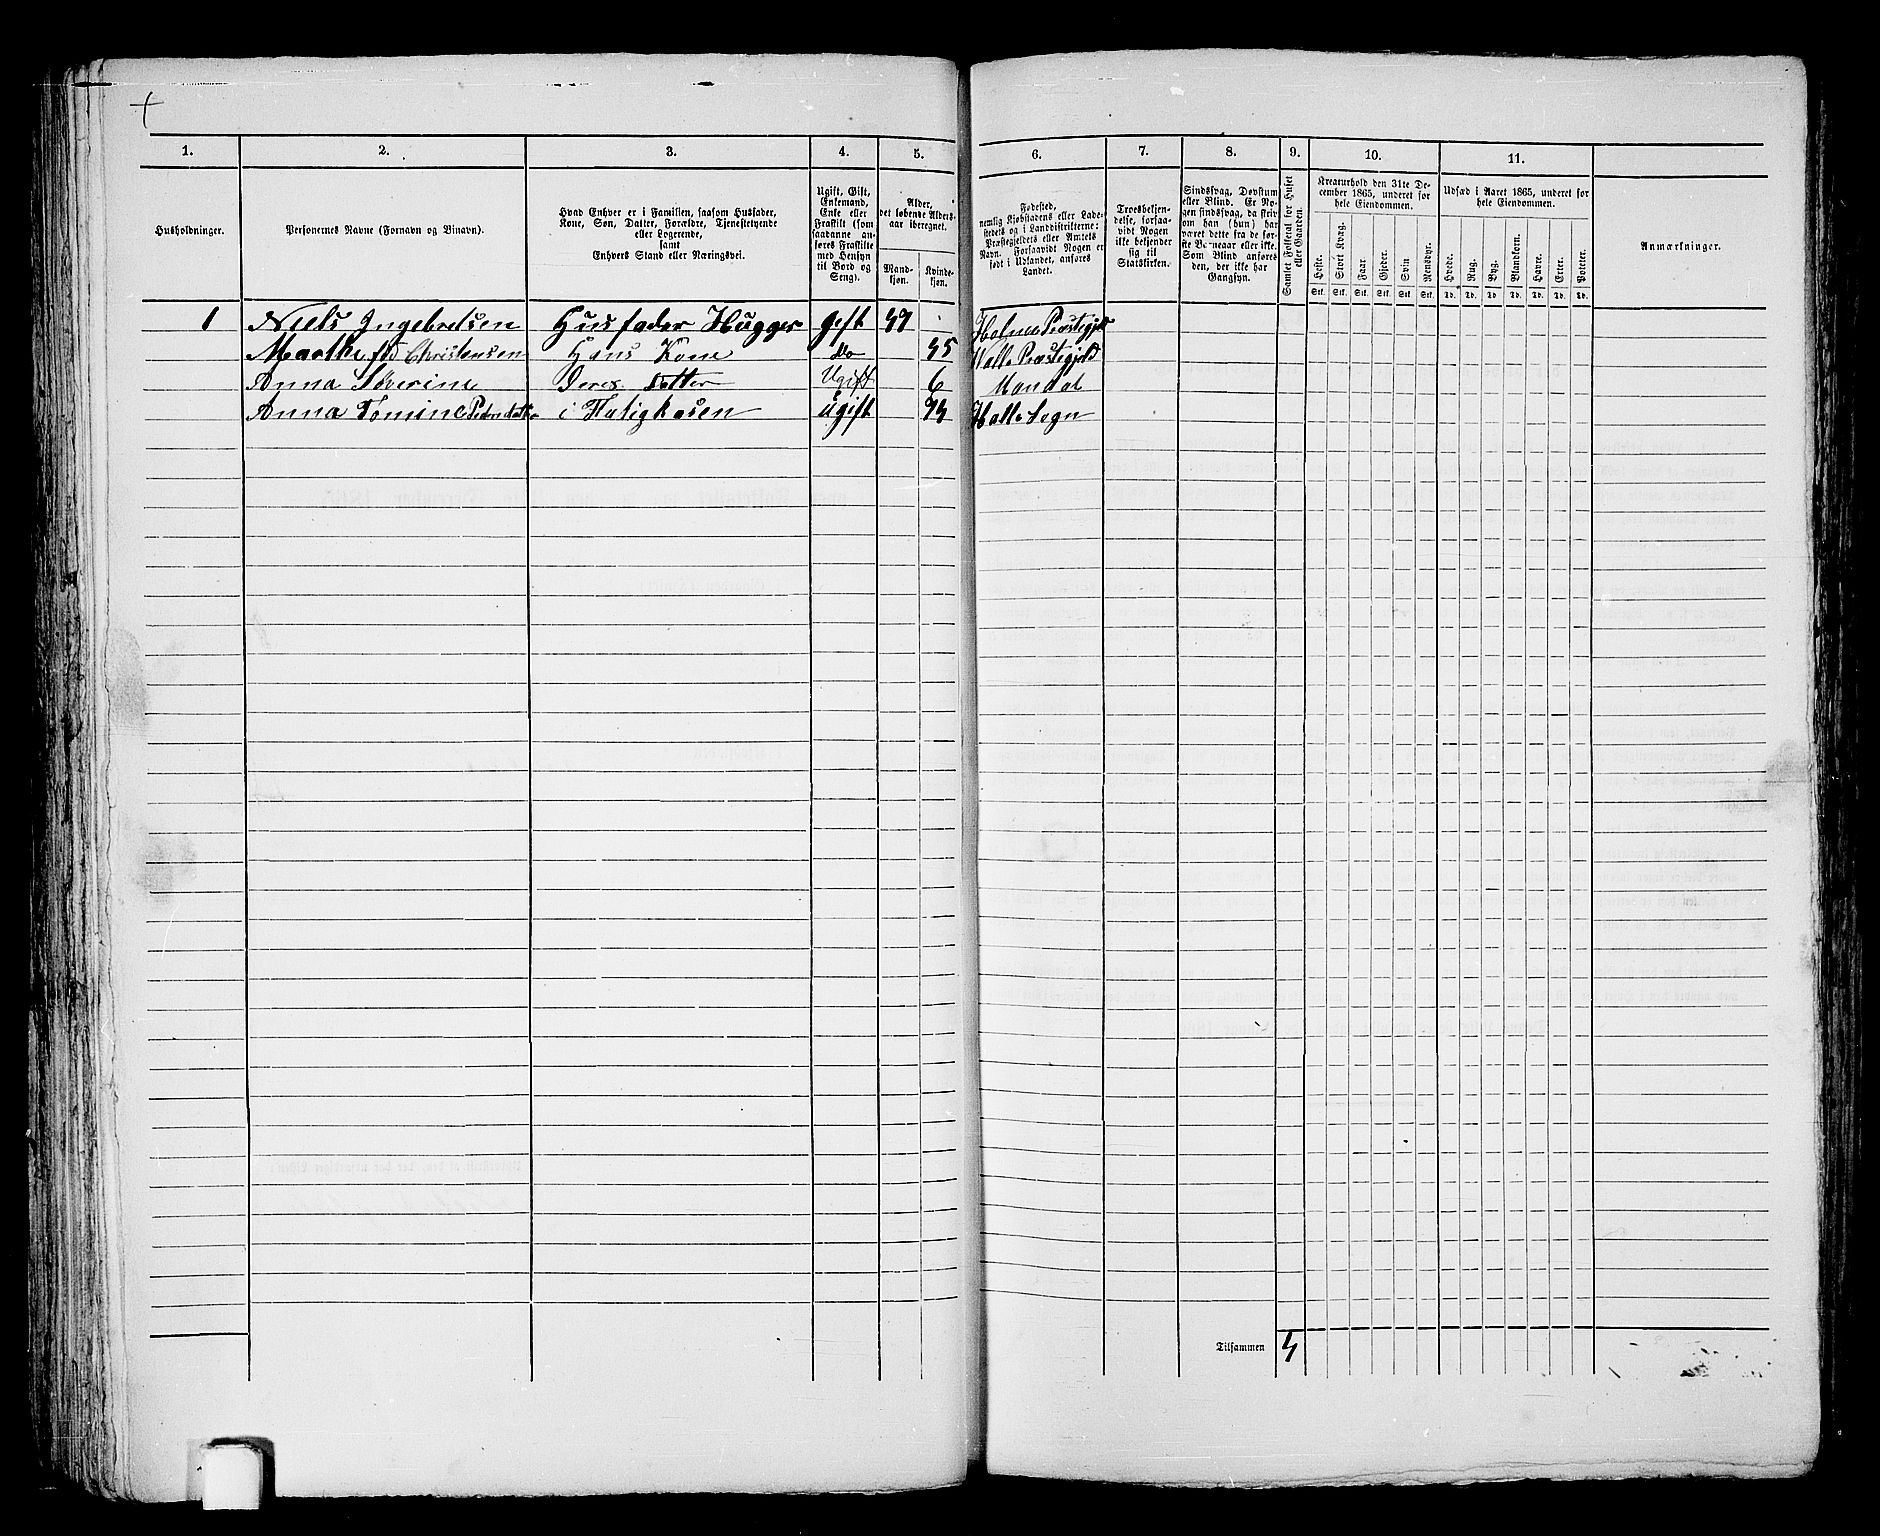 1. 2. 3. 4. 5. 6. 7. 8. 9. 10. 11.
Husholdninger.
Personernes Navne (Fornavn og Binavn).
Hvad Enhver er i Familien, saasom Husfader,
Kone, Søn, Datter, Forældre, Tjenestetyende
eller Logerende,
samt
Enhvers Stand eller Næringsvei.
Ugift, Gift,
Enkemand,
Enke eller
Fraskilt (som
saadanne an-
føres Fraskilte
med Hensyn
til Bord og
Seng).
Alder,
det løbende Alders-
aar iberegnet.
Mand-
kjøn.
Kvinde-
kjøn.
Fødested,
nemlig Kjøbstadens eller Lade-
stedets og i Landdistrikterne:
Præstegjeldets eller Amtets
Navn. Forsaavidt Nogen er
født i Udlandet, anføres
Landet.
Troesbekjen-
delse, forsaa-
vidt Nogen
ikke bekjender
sig til
Statskirken.
Sindssvag, Døvstum
eller Blind. Er No-
gen sindssvag, da skriv
om han (hun) har
været dette fra de før-
ste Barneaar eller ikke.
Som Blind anføres
den, der ikke har
Gangsyn.
Samlet Folketal for Huset
eller Gaarden.
Kreaturhold den 31te De-
cember 1865, underet for
hele Eiendommen.
Heste. Stort Kvæg. Faar. Gjeder. Svin Rensdyr.
Stk. Stk. Stk. Stk. Stk. Stk.
Udsæd i Aaret 1865, underet for
hele Eiendommen.
Hvede. Rug. Byg. Blandkorn. Havre. Erter. Poteter.
Td. Td. Td Td. Td. Td. Td.
Anmærkninger.
1 Niels Ingebretsen Husfader Hugger gift 49 Holmes Præstegjeld
Marthe fød Christensen Hans Kone do 45 Halle Præstegjeld
Anna Severine Deres Datter Ugift 6 Mandal
Anna Tomine Pedersdatter i Fatigkasen ugift 74 Halle Sogn
Tilsammen 4